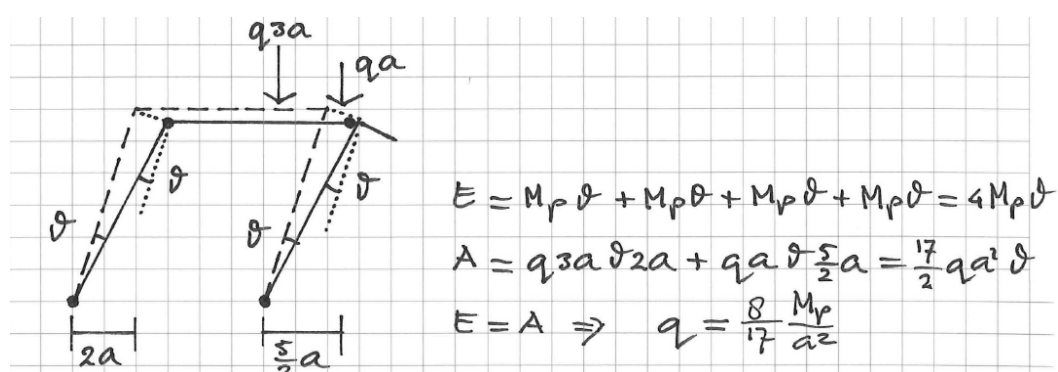 q3a
qa
ϑ
ϑ
ϑ
ϑ
2a
5/2 a
E = Mp ϑ + Mp θ + Mp ϑ + Mp ϑ = 4 Mp ϑ
A = q3a ϑ 2a + qa ϑ 5/2 a = 17/2 qa² ϑ
E = A ⇒ q = 8/17 Mp/a²